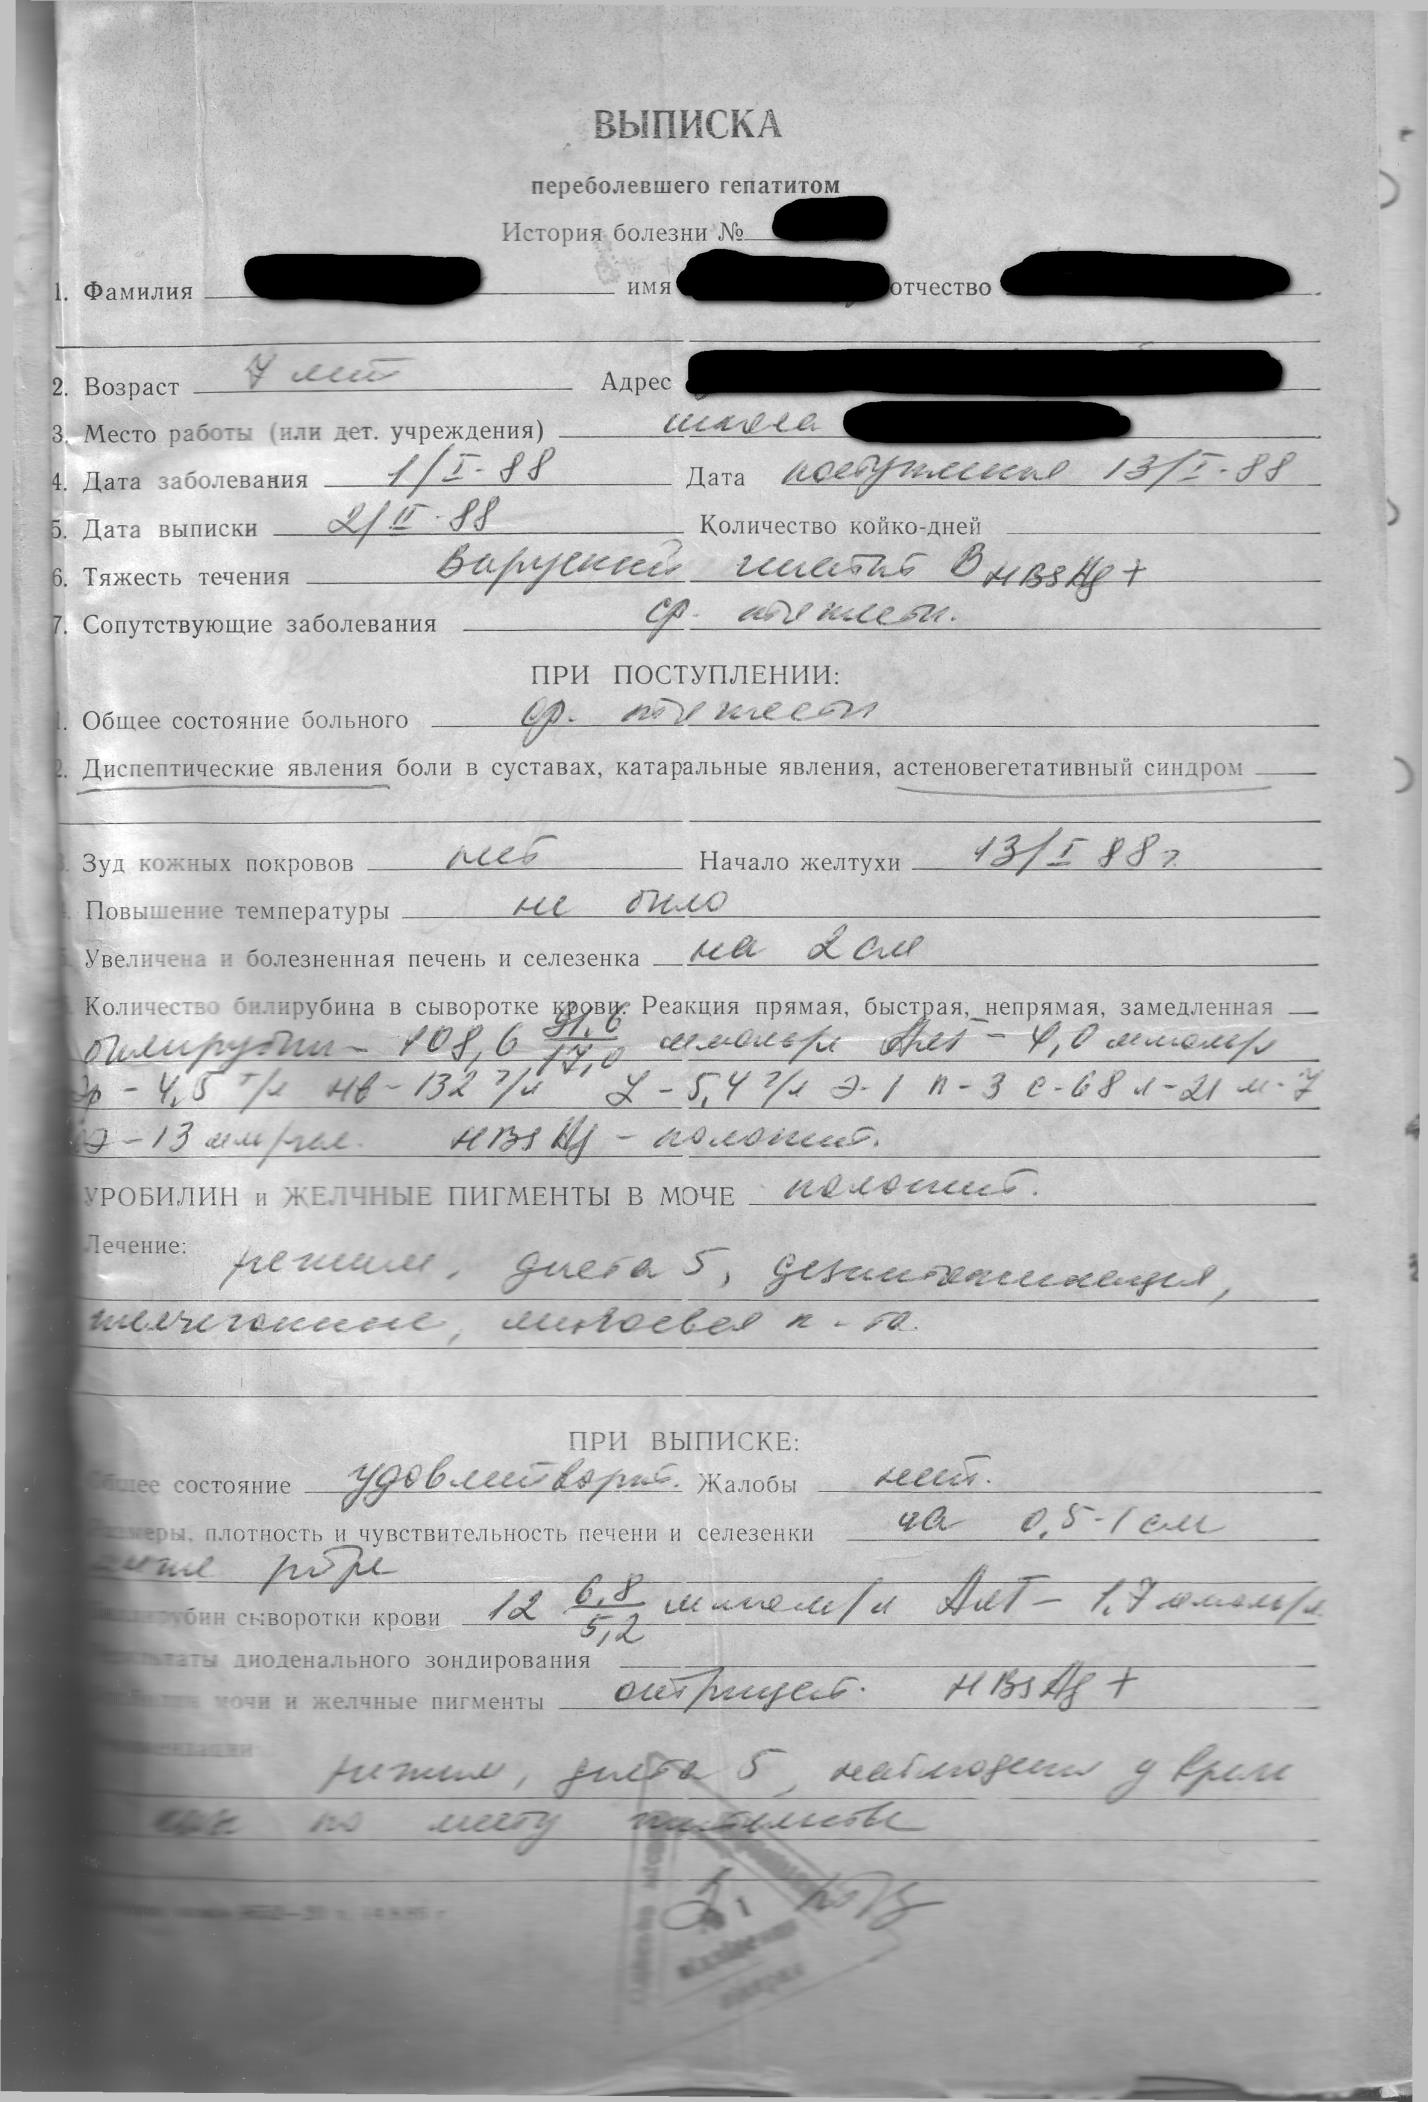 ВЫПИСКА
переболевшего гепатитом
История болезни №
1. Фамилия имя отчество
2. Возраст 7 лет Адрес
3. Место работы (или дет. учреждения) школа
4. Дата заболевания 1/I-88 Дата поступления 13/I-88
5. Дата выписки 2/II-88 Количество койко-дней
6. Тяжесть течения Вирусный гепатит В HBSAg+
7. Сопутствующие заболевания ср. тяжести.
ПРИ ПОСТУПЛЕНИИ:
1. Общее состояние больного ср. тяжести
2. Диспептические явления боли в суставах, катаральные явления, астеновегетативный синдром
3. Зуд кожных покровов нет Начало желтухи 13/I 88 г.
Повышение температуры не было
Увеличена и болезненная печень и селезенка на 2 см
Количество билирубина в сыворотке крови. Реакция прямая, быстрая, непрямая, замедленная
билирубин - 108,6 91,6/17,0 ммоль/л Алт - 4,0 ммоль/л
Эр - 4,5 т/л Нв - 132 г/л L - 5,4 г/л Э-1 п-3 с-68 л-21 м-7
СОЭ - 13 мм/час. HBSAg - положит.
УРОБИЛИН и ЖЕЛЧНЫЕ ПИГМЕНТЫ В МОЧЕ положит.
Лечение:
режим, диета 5, дезинтоксикация,
желчегонные, липоевая к-та.
ПРИ ВЫПИСКЕ:
Общее состояние удовлетворит. Жалобы нет.
Размеры, плотность и чувствительность печени и селезенки на 0,5-1 см
ниже ребра
Билирубин сыворотки крови 12 6,8/5,2 ммоль/л АлТ - 1,7 ммоль/л
Результаты диоденального зондирования
мочи и желчные пигменты отрицат. HBSAg +
Рекомендации
режим, диета 5, наблюдение у
по месту жительства